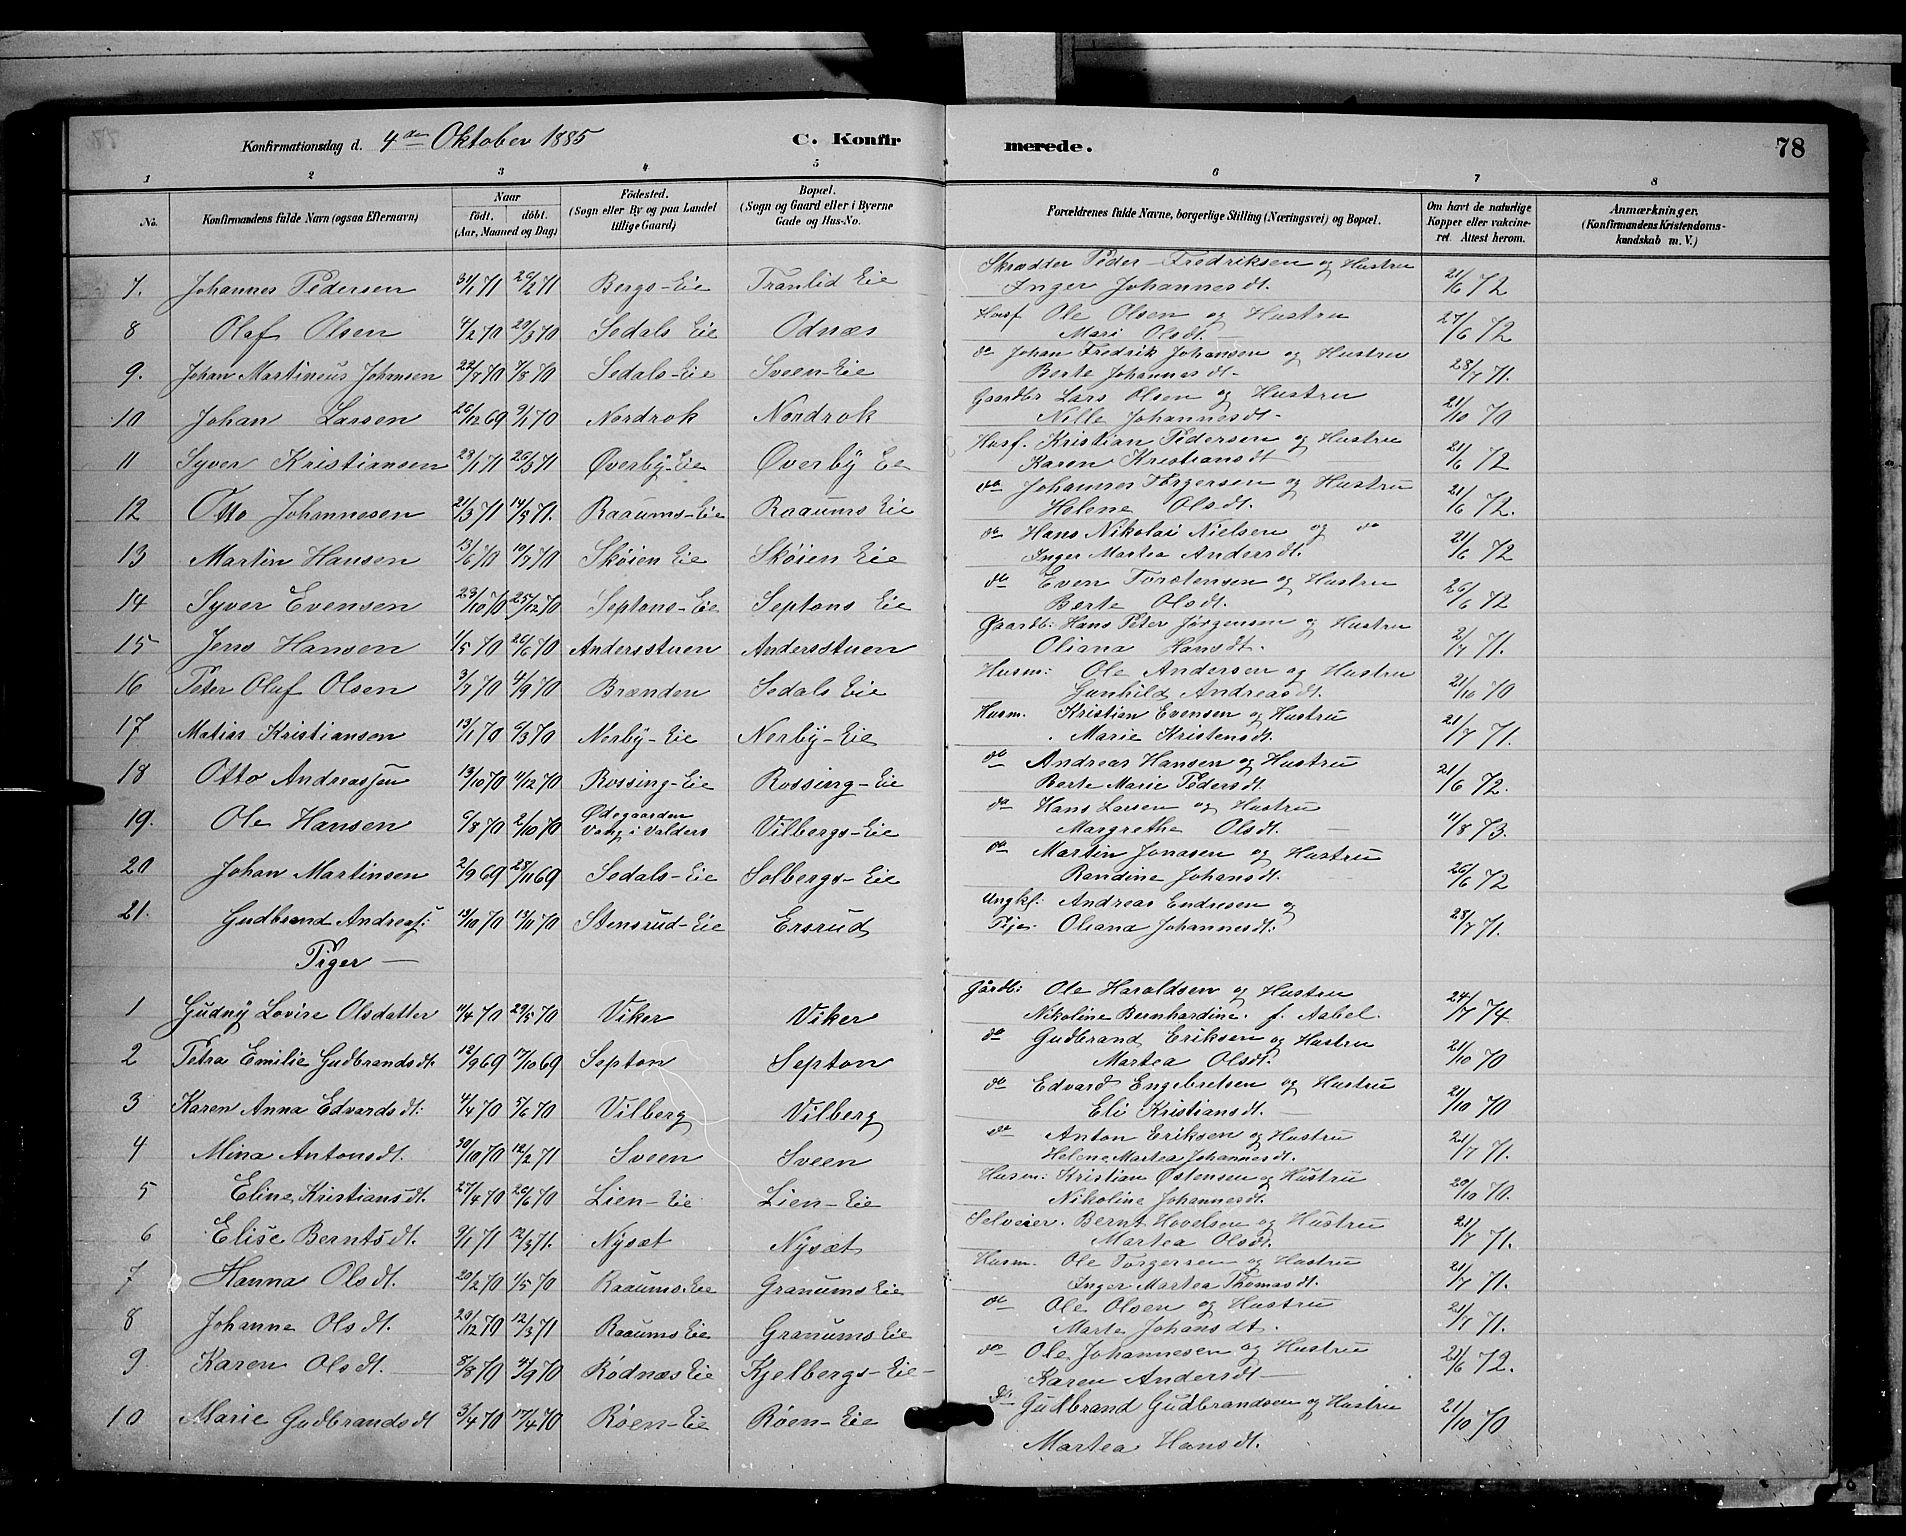 Konfirmationsdag d. 4de Oktober 1885 C. Konfirmerede. 78
1 2 3 4 5 6 7 8
No. Konfirmandens fulde Navn (ogsaa Efternavn) Naar födt. döbt. (Aar, Maaned og Dag) Födested. (Sogn eller By og paa Landet tillige Gaard) Bopæl. (Sogn og Gaard eller i Byerne Gade og Hus-No. Forældrenes fulde Navne, borgerlige Stilling (Næringsvei) og Bopæl. Om havt de naturlige Kopper eller vakcineret. Attest herom. Anmærkninger. (Konfirmandens Kristendomskundskab m. V.)
7. Johannes Pedersen 31/1 71 26/2 71 Bergs-Eie Tranlid Eie Skrædder Peder Fredriksen og Hustru Inger Johannesdt. 21/6 72
8 Olaf Olsen 4/2 70 20/3 70 Sedals Eie Odnæs Husf. Ole Olsen og Hustru Mari Olsdt. 27/6 72
9. Johan Martineus Johansen 22/7 70 7/8 70 Sedals-Eie Sveen-Eie do Johan Fredrik Johansen og Hustru Berte Johannesdt. 28/7 71.
10 Johan Larsen 26/12 69 9/1 70 Nordrok Nordrok Gaardbr Lars Olsen og Hustru Nille Johannesdt. 21/10 70
11 Syver Kristiansen 23/1 71 26/3 71 Øverby-Eie Øverby Eie Husf. Kristian Pedersen og Hustru Karen Kristiansdt 21/6 72
12 Otto Johannesen 21/3 71 14/5 71. Raaums-Eie Raaums Eie do Johannes Torgersen og Hustru Helene Olsdt. 21/6 72.
13 Martin Hansen 13/6 70 10/7 70 Skøien Eie Skøien Eie do Hans Nikolai Nielsen og do Inger Martea Andersdt. 21/6 72
14 Syver Evensen 23/10 70 25/12 70 Septons-Eie Septons Eie do Even Torstensen og Hustru Berte Olsdt. 26/6 72
15 Jens Hansen 1/5 70 26/6 70 Andersstuen Andersstuen Gaardb: Hans Peter Jørgensen og Hustru Oliana Hansdt. 2/7 71.
16 Peter Olaf Olsen 3/7 70 4/9 70 Brænden Sedals Eie Husm: Ole Andersen og Hustru Gunhild Andreasdt. 21/10 70
17 Matias Kristiansen 13/1 70 6/3 70 Nerby-Eie Nerby-Eie Husm. Kristian Evensen og Hustru Marie Kristensdt. 21/7 71.
18 Otto Andreassen 13/10 70 4/12 70 Rossing-Eie Rossing-Eie do Andreas Hansen og Hustru Berte Marie Pedersdt. 21/6 72.
19. Ole Hansen 6/8 70 2/10 70 Ødegaarden Vang i Valders Vilbergs-Eie do Hans Larsen og Hustru Margrethe Olsdt. 11/8 73.
20 Johan Martinsen 2/9 69 28/11 69 Sedals-Eie Solbergs-Eie do Martin Jonasen og Hustru Randine Johansdt. 26/6 72
21. Gudbrand Andreas: 13/10 70 13/11 70 Stensrud-Eie Ersrud Ungkl: Andreas Endresen og Pige Oliana Johannesdt. 28/7 71.
Piger
1 Gudny Lovise Olsdatter 11/4 70 29/5 70 Viker Viker Gårdb: Ole Haraldsen og Hustru Nikoline Bernhardine f. Aabel. 24/7 74
2 Petra Emilie Gudbrandsdt. 12/9 69 17/10 69 Septon Septon do Gudbrand Eriksen og Hustru Martea Olsdt. 21/10 70
3 Karen Anna Edvardsdt: 4/4 70 5/6 70 Vilberg Vilberg do Edvard Engebretsen og Hustru Eli Kristiansdt. 21/10 70
4 Mina Antonsdt. 30/10 70 12/2 71 Sveen Sveen do Anton Eriksen og Hustru Helene Martea Johannesdt. 21/7 71.
5 Eline Kristiansdt. 27/4 70 26/6 70 Lien-Eie Lien-Eie Husm: Kristian Østensen og Hustru Nikoline Johannesdt. 20/10 70.
6 Elise Berntsdt. 9/1 71 12/3 71. Nysæt Nysæt Selveier. Bernt Hovelsen og Hustru Martea Olsdt. 21/7 71.
7 Hanna Olsdt. 20/2 70 1/5 70 Raaums. Eie Granums Eie Husm. Ole Torgersen og Hustru Inger Martea Thomasdt. 21/7 71.
8 Johanne Olsdt. 20/12 70 12/3 71 Raaums Eie Granums Eie do Ole Olsen og Hustru Marte Johansdt. 21/7 71.
9. Karen Olsdt. 5/8 70 4/9 70 Rødnæs Eie Kjelbergs-Eie do Ole Johannesen og Hustru Karen Andersdt 21/6 72.
10 Marie Gudbrandsdt 3/4 70 17/4 70 Røen-Eie Røen-Eie do Gudbrand Gudbrandsen og Hustru Martea Hansdt. 21/10 70